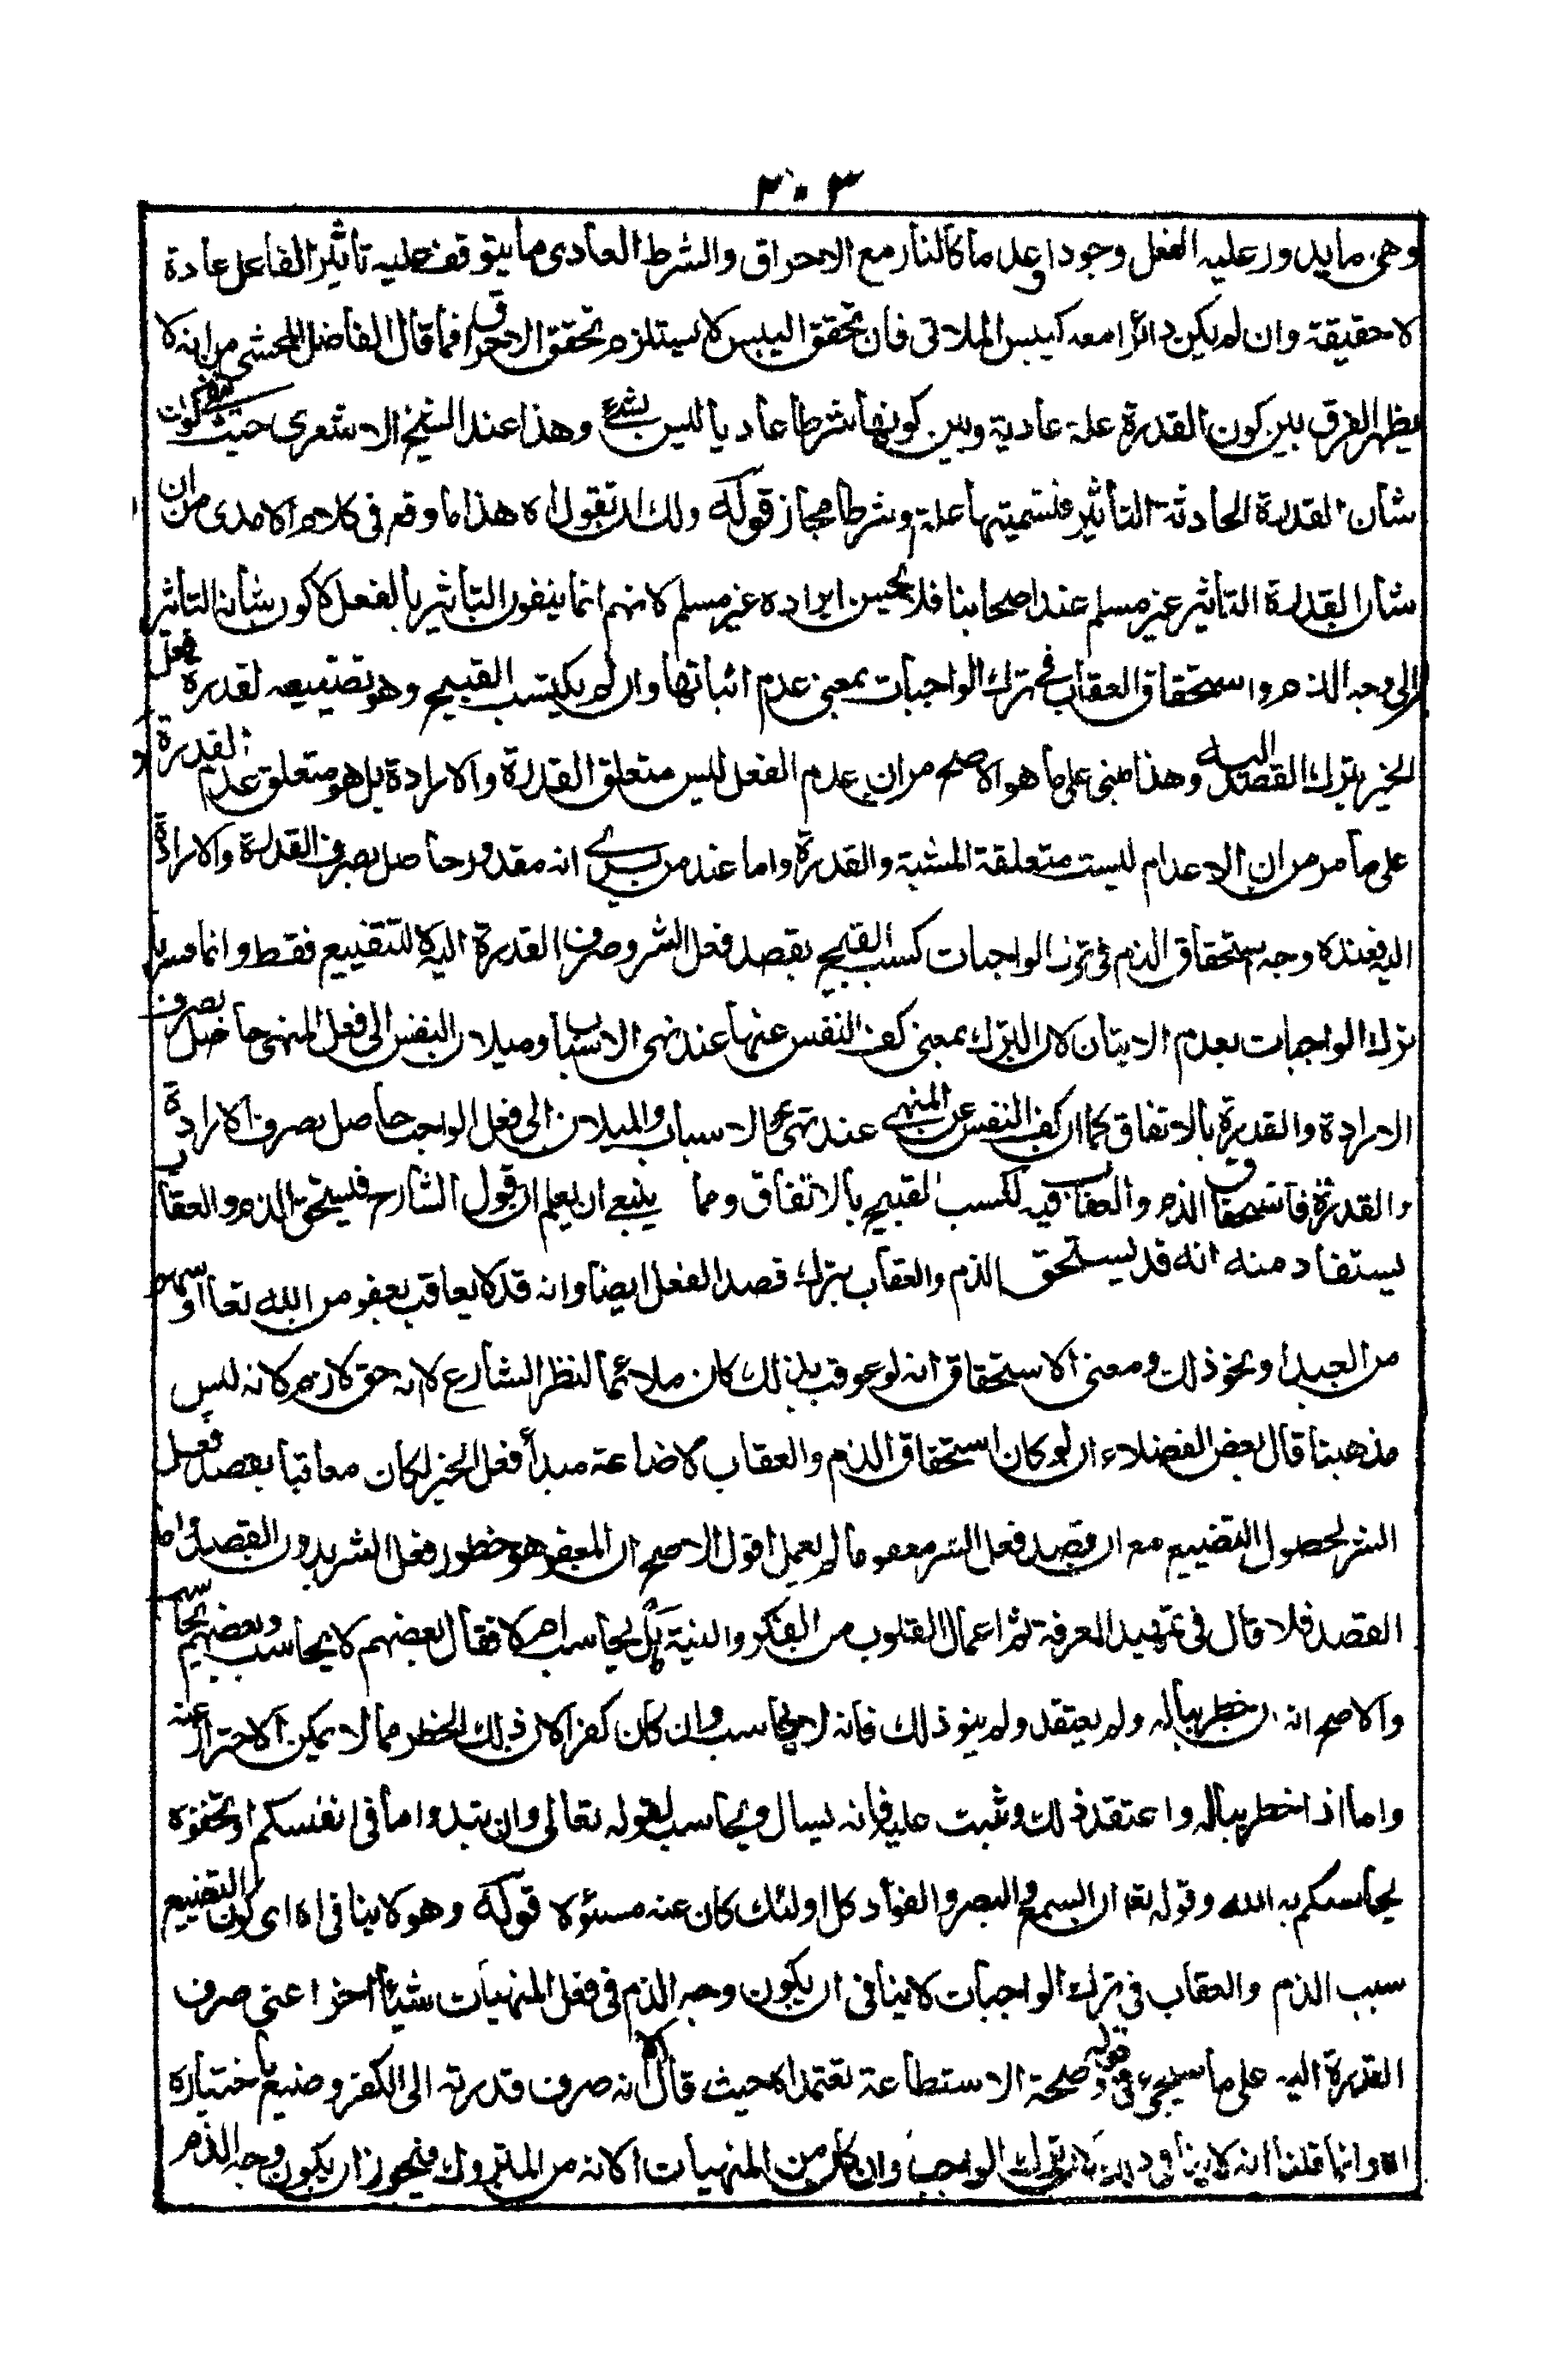 ٣٠٣
وهى ما يدور عليه الفعل وجودا وعدما كالنار مع الاحراق والشرط العادى ما يتوقف عليه تاثير الفاعل عادة
لا حقيقة وان لم يكن دائرا معه كيبس الملاقى فان تحقق اليبس لا يستلزم تحقق الاحراق فما قال الفاضل المحشى من انه لا
يظهر الفرق بين كون القدرة علة عادية وبين كونها شرطا عاديا ليس بشئ وهذا عند الشيخ الاشعرى حيث
شأن القدرة الحادثة التأثير فتسميتها علة وشرطا مجاز قوله ولك ان تقول اه هذا ما وقع فى كلام الامدى من ان
شأن القدرة التأثير غير مسلم عند اصحابنا فلا يحسن ايراده غير مسلم لانهم انما ينفون التأثير بالفعل لا كون شأنه التأثير
الى وجه الذم واستحقاق العقاب فى ترك الواجبات بمعنى عدم اتيانها وان لم يكتسب القبيح وهو تضييعه لقدرة فعل
الخير بترك القصد اليه وهذا مبنى على ما هو الاصح من ان عدم الفعل ليس متعلق القدرة والارادة بل هو متعلق عدم القدرة
على ما مر من ان الاعدام ليست متعلقة المشية والقدرة واما عند من يرى انه مقدور حاصل بصرف القدرة والارادة
اليه فعنده وجه استحقاق الذم فى ترك الواجبات كسب القبيح بقصد فعل الشر وصرف القدرة اليه لا لتضييع فقط وانما فسر
ترك الواجبات بعدم الاتيان لان الترك بمعنى كف النفس عنها عند تهى الاسباب وميلان النفس الى فعل المنهى حاصل بصرف
الارادة والقدرة بالاتفاق كما ان كف النفس عن المنهى عند تهئ الاسباب والميلان الى فعل الواجب حاصل بصرف الارادة
والقدرة فاستحقاق الذم والعقاب فيه لكسب القبيح بالاتفاق ومما ينبغى ان يعلم ان قول الشارح فيستحق الذم والعقاب
يستفاد منه انه قد يستحق الذم والعقاب بترك قصد الفعل ايضا وانه قد لا يعاقب بعفو من الله تعا او سهو
من العبد او نحو ذلك ومعنى الاستحقاق انه لو عوقب بذلك كان ملائما لنظر الشارع لا انه حق لازم لانه ليس
مذهبنا قال بعض الفضلاء ان لو كان استحقاق الذم والعقاب لاضاعة مبدأ فعل الخير لكان معاقبا بقصد فعل
الشر لحصول التضييع مع ان قصد فعل الشر معفو ما لم يعمل اقول الاصح ان المعفو هو خطور فعل الشر بدون القصد واما
القصد فلا قال فى تمهيد المعرفة ثم اعمال القلوب من الفكر والنية هل يحاسب ام لا فقال بعضهم لا يحاسب وبعضهم يحاسب
والاصح انه ان خطر بباله ولم يعتقد ولم ينو ذلك فانه لا يحاسب وان كان كفرا لان ذلك الخطر مما لا يمكن الاحتراز عنه
واما اذا خطر بباله واعتقد ذلك وثبت عليه فانه يسال ويحاسب لقوله تعالى وان تبدوا ما فى انفسكم او تخفوه
يحاسبكم به الله وقوله تع ان السمع والبصر والفؤاد كل اولئك كان عنه مسئولا قوله وهو لا ينافى اه اى كون التضييع
سبب الذم والعقاب فى ترك الواجبات لا ينافى ان يكون وجه الذم فى فعل المنهيات شيئا اخر اعنى صرف
القدرة اليه على ما سيجئ فى قوله وصحة الاستطاعة تعتمد اه حيث قال الا انه صرف قدرته الى الكفر وضيع باختياره
اه وانما قلنا انه لا ينافى ترك الواجب وان كان من المنهيات الا انه من المتروك فيجوز ان يكون وجه الذم